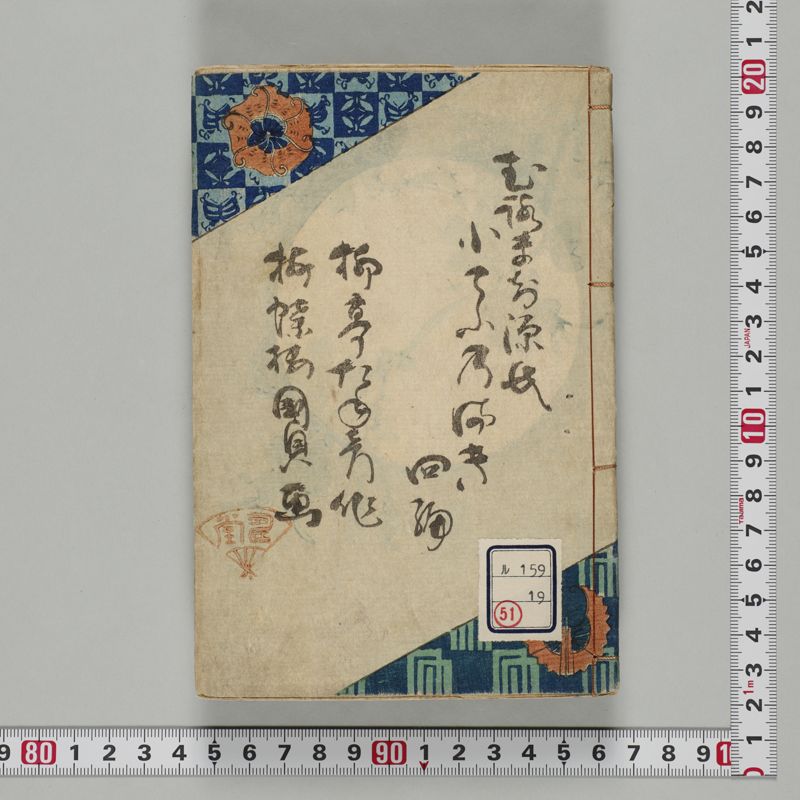 む路まち源氏
小てふ乃満き
四編
柳亭たね彦作
梅蝶楼國貞画
ル 159
19
51
1 2 3 4 5 6 7 8 9 10 1 2 3 4 5 6 7 8 9 20 1 2
JAPAN
Tajima
1m
9 80 1 2 3 4 5 6 7 8 9 90 1 2 3 4 5 6 7 8 9